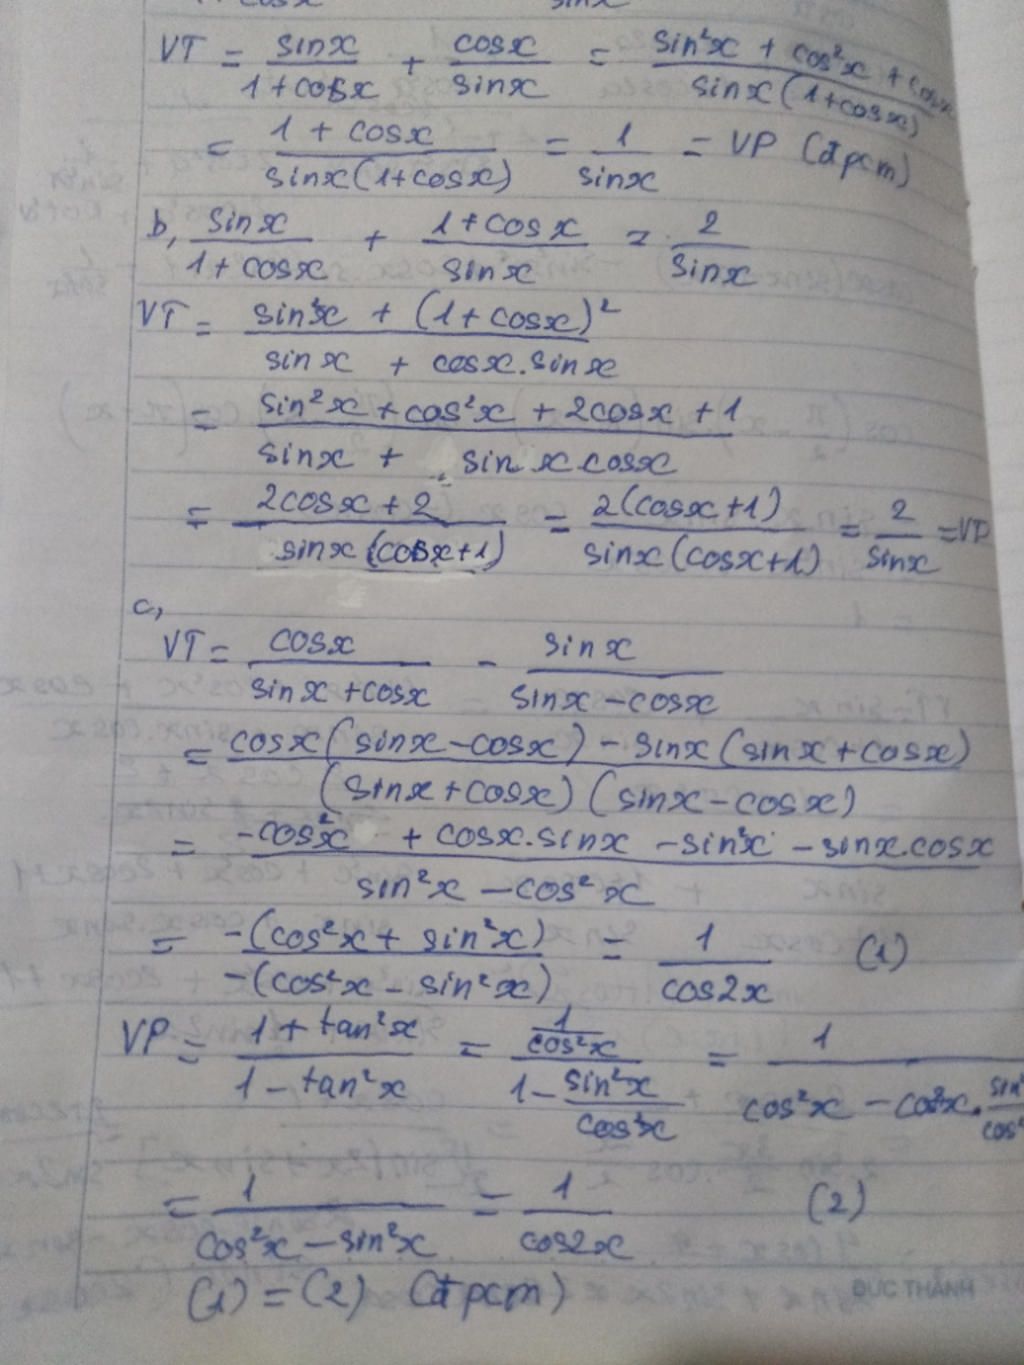 1 + cosx sinx
VT = sinx / (1+cosx) + cosx / sinx = (sin²x + cos²x + cosx) / (sinx(1+cosx))
= (1 + cosx) / (sinx(1+cosx)) = 1 / sinx = VP (đpcm)
b, sinx / (1+cosx) + (1+cosx) / sinx = 2 / sinx
VT = (sin²x + (1+cosx)²) / (sinx + cosx.sinx)
= (sin²x + cos²x + 2cosx + 1) / (sinx + sinx.cosx)
= (2cosx + 2) / (sinx(cosx+1)) = 2(cosx+1) / (sinx(cosx+1)) = 2 / sinx = VP
c,
VT = cosx / (sinx+cosx) - sinx / (sinx-cosx)
= (cosx(sinx-cosx) - sinx(sinx+cosx)) / ((sinx+cosx)(sinx-cosx))
= (-cos²x + cosx.sinx - sin²x - sinx.cosx) / (sin²x - cos²x)
= -(cos²x + sin²x) / -(cos²x - sin²x) = 1 / cos2x (1)
VP = (1 + tan²x) / (1 - tan²x) = (1 / cos²x) / (1 - sin²x / cos²x) = 1 / (cos²x - cos²x. sin² / cos²
= 1 / (cos²x - sin²x) = 1 / cos2x (2)
(1) = (2) (đpcm)
ĐỨC THÀNH